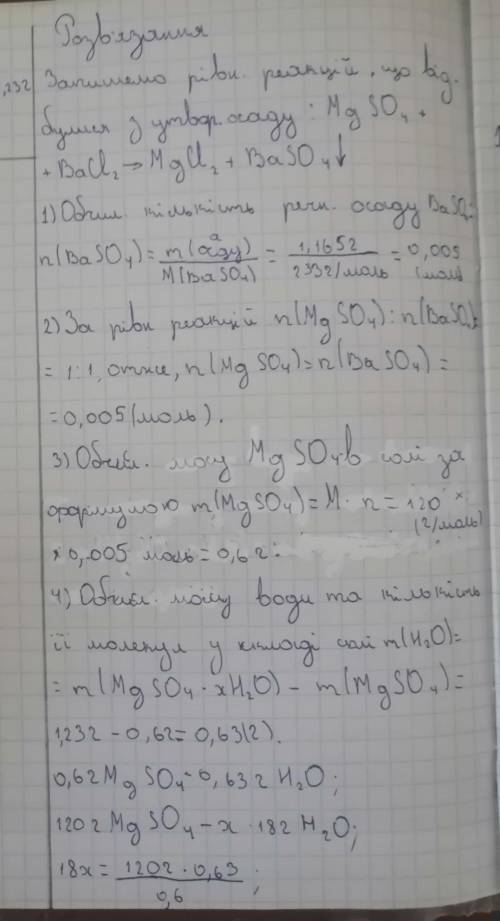 Розв'язання
,23г Запишемо рівн. реакцій, що від-
булися з утвор. осаду: MgSO₄ +
+ BaCl₂ → MgCl₂ + BaSO₄↓
1) Обчил. кількість речн. осаду BaSO₄:
n(BaSO₄) = m(осаду) / M(BaSO₄) = 1,165г / 233г/моль = 0,005 (моль)
2) За рівн реакцій n(MgSO₄) : n(BaSO₄)
= 1:1, отже, n(MgSO₄) = n(BaSO₄) =
= 0,005 (моль).
3) Обчил. масу MgSO₄ в солі за
формулою m(MgSO₄) = M · n = 120 ×
(г/моль)
× 0,005 моль = 0,6г.
4) Обчил. масу води та кількість
її молекул у складі солі m(H₂O) =
= m(MgSO₄ · xH₂O) − m(MgSO₄) =
1,23г − 0,6г = 0,63(г).
0,6г MgSO₄ - 0,63г H₂O;
120г MgSO₄ − x · 18г H₂O;
18x = 120г · 0,63 / 0,6 ;